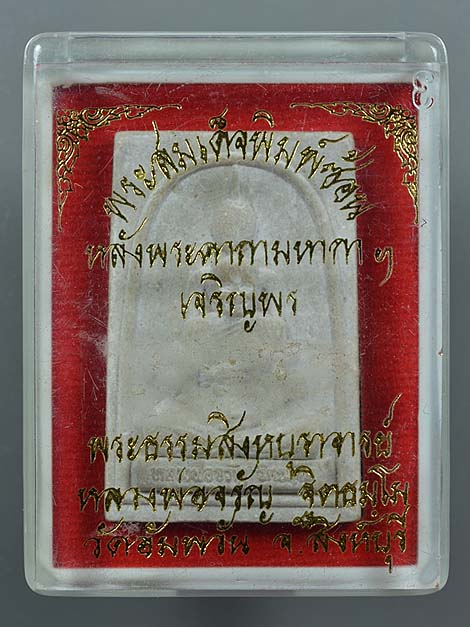 พระสมเด็จพิมพ์ซ้อน
หลังพระคาถามหากา ๆ
เจริญพร
พระธรรมสิงหบุราจารย์
หลวงพ่อจรัญ ฐิตธมฺโม
วัดอัมพวัน จ.สิงห์บุรี